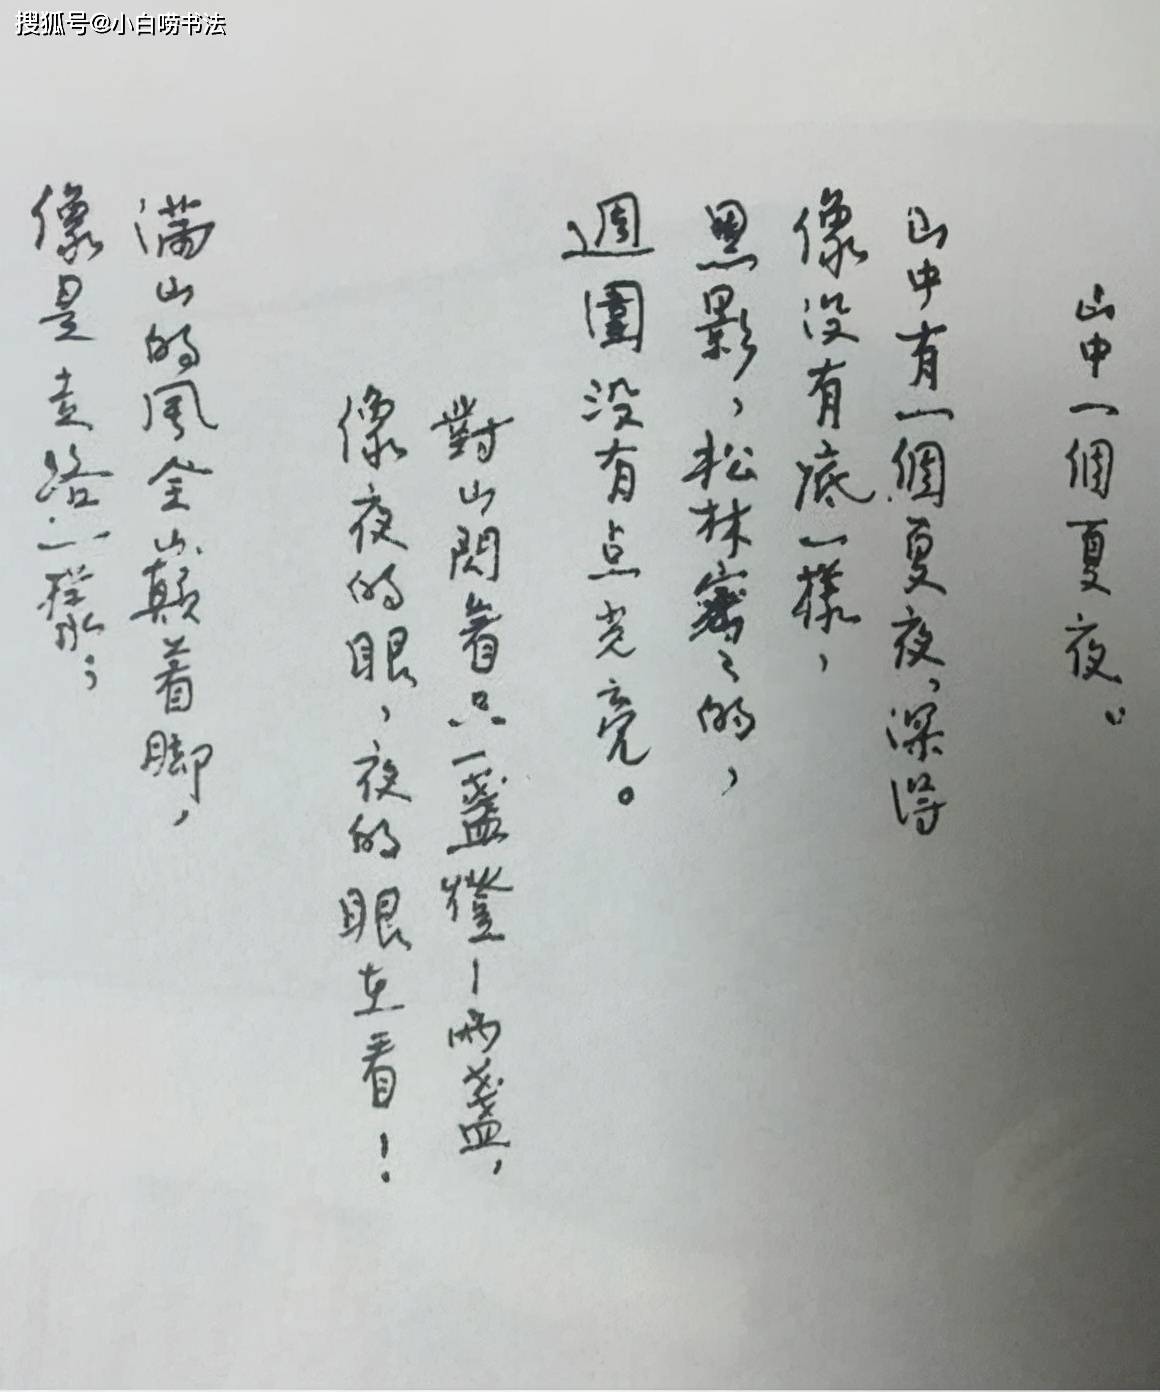 搜狐号@小白唠书法
山中一個夏夜。
山中有一個夏夜，深得
像没有底一樣，
黑影，松林密々的，
週圍没有点光亮。
對山閃着只一盞燈—兩盞，
像夜的眼，夜的眼在看！
滿山的風全山顛着脚，
像是走路一樣；